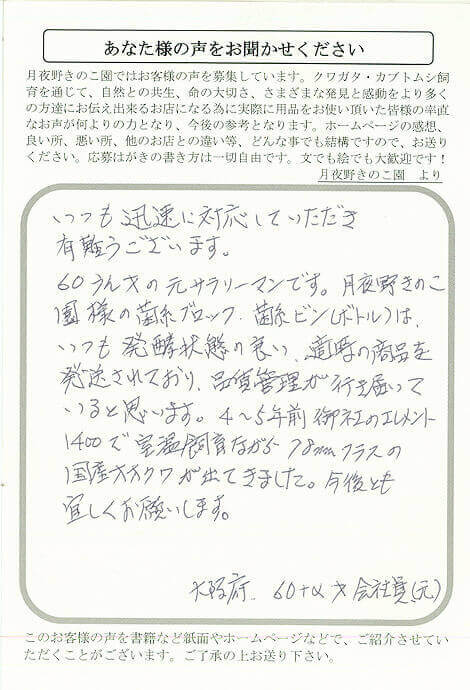 あなた様の声をお聞かせください
月夜野きのこ園ではお客様の声を募集しています。クワガタ・カブトムシ飼
育を通じて、自然との共生、命の大切さ、さまざまな発見と感動をより多く
の方達にお伝え出来るお店になる為に実際に用品をお使い頂いた皆様の率直
なお声が何よりの力となり、今後の参考となります。ホームページの感想、
良い所、悪い所、他のお店との違い等、どんな事でも結構ですので、お送り
ください。応募はがきの書き方は一切自由です。文でも絵でも大歓迎です!
月夜野きのこ園 より
いつも迅速に対応していただき
有難うございます。
60うん才の元サラリーマンです。月夜野きのこ
園様の菌糸ブロック、菌糸ビン(ボトル)は、
いつも発酵状態の良い、適時の商品を
発送されており、品質管理が行き届いて
いると思います。4〜5年前御社のエレメント
1400で室温飼育ながら78mmクラスの
国産オオクワが出てきました。今後とも
宜しくお願いします。
大阪府、60+α才 会社員(元)
このお客様の声を書籍など紙面やホームページなどで、ご紹介させてい
ただくことがございます。ご了承の上お送り下さい。